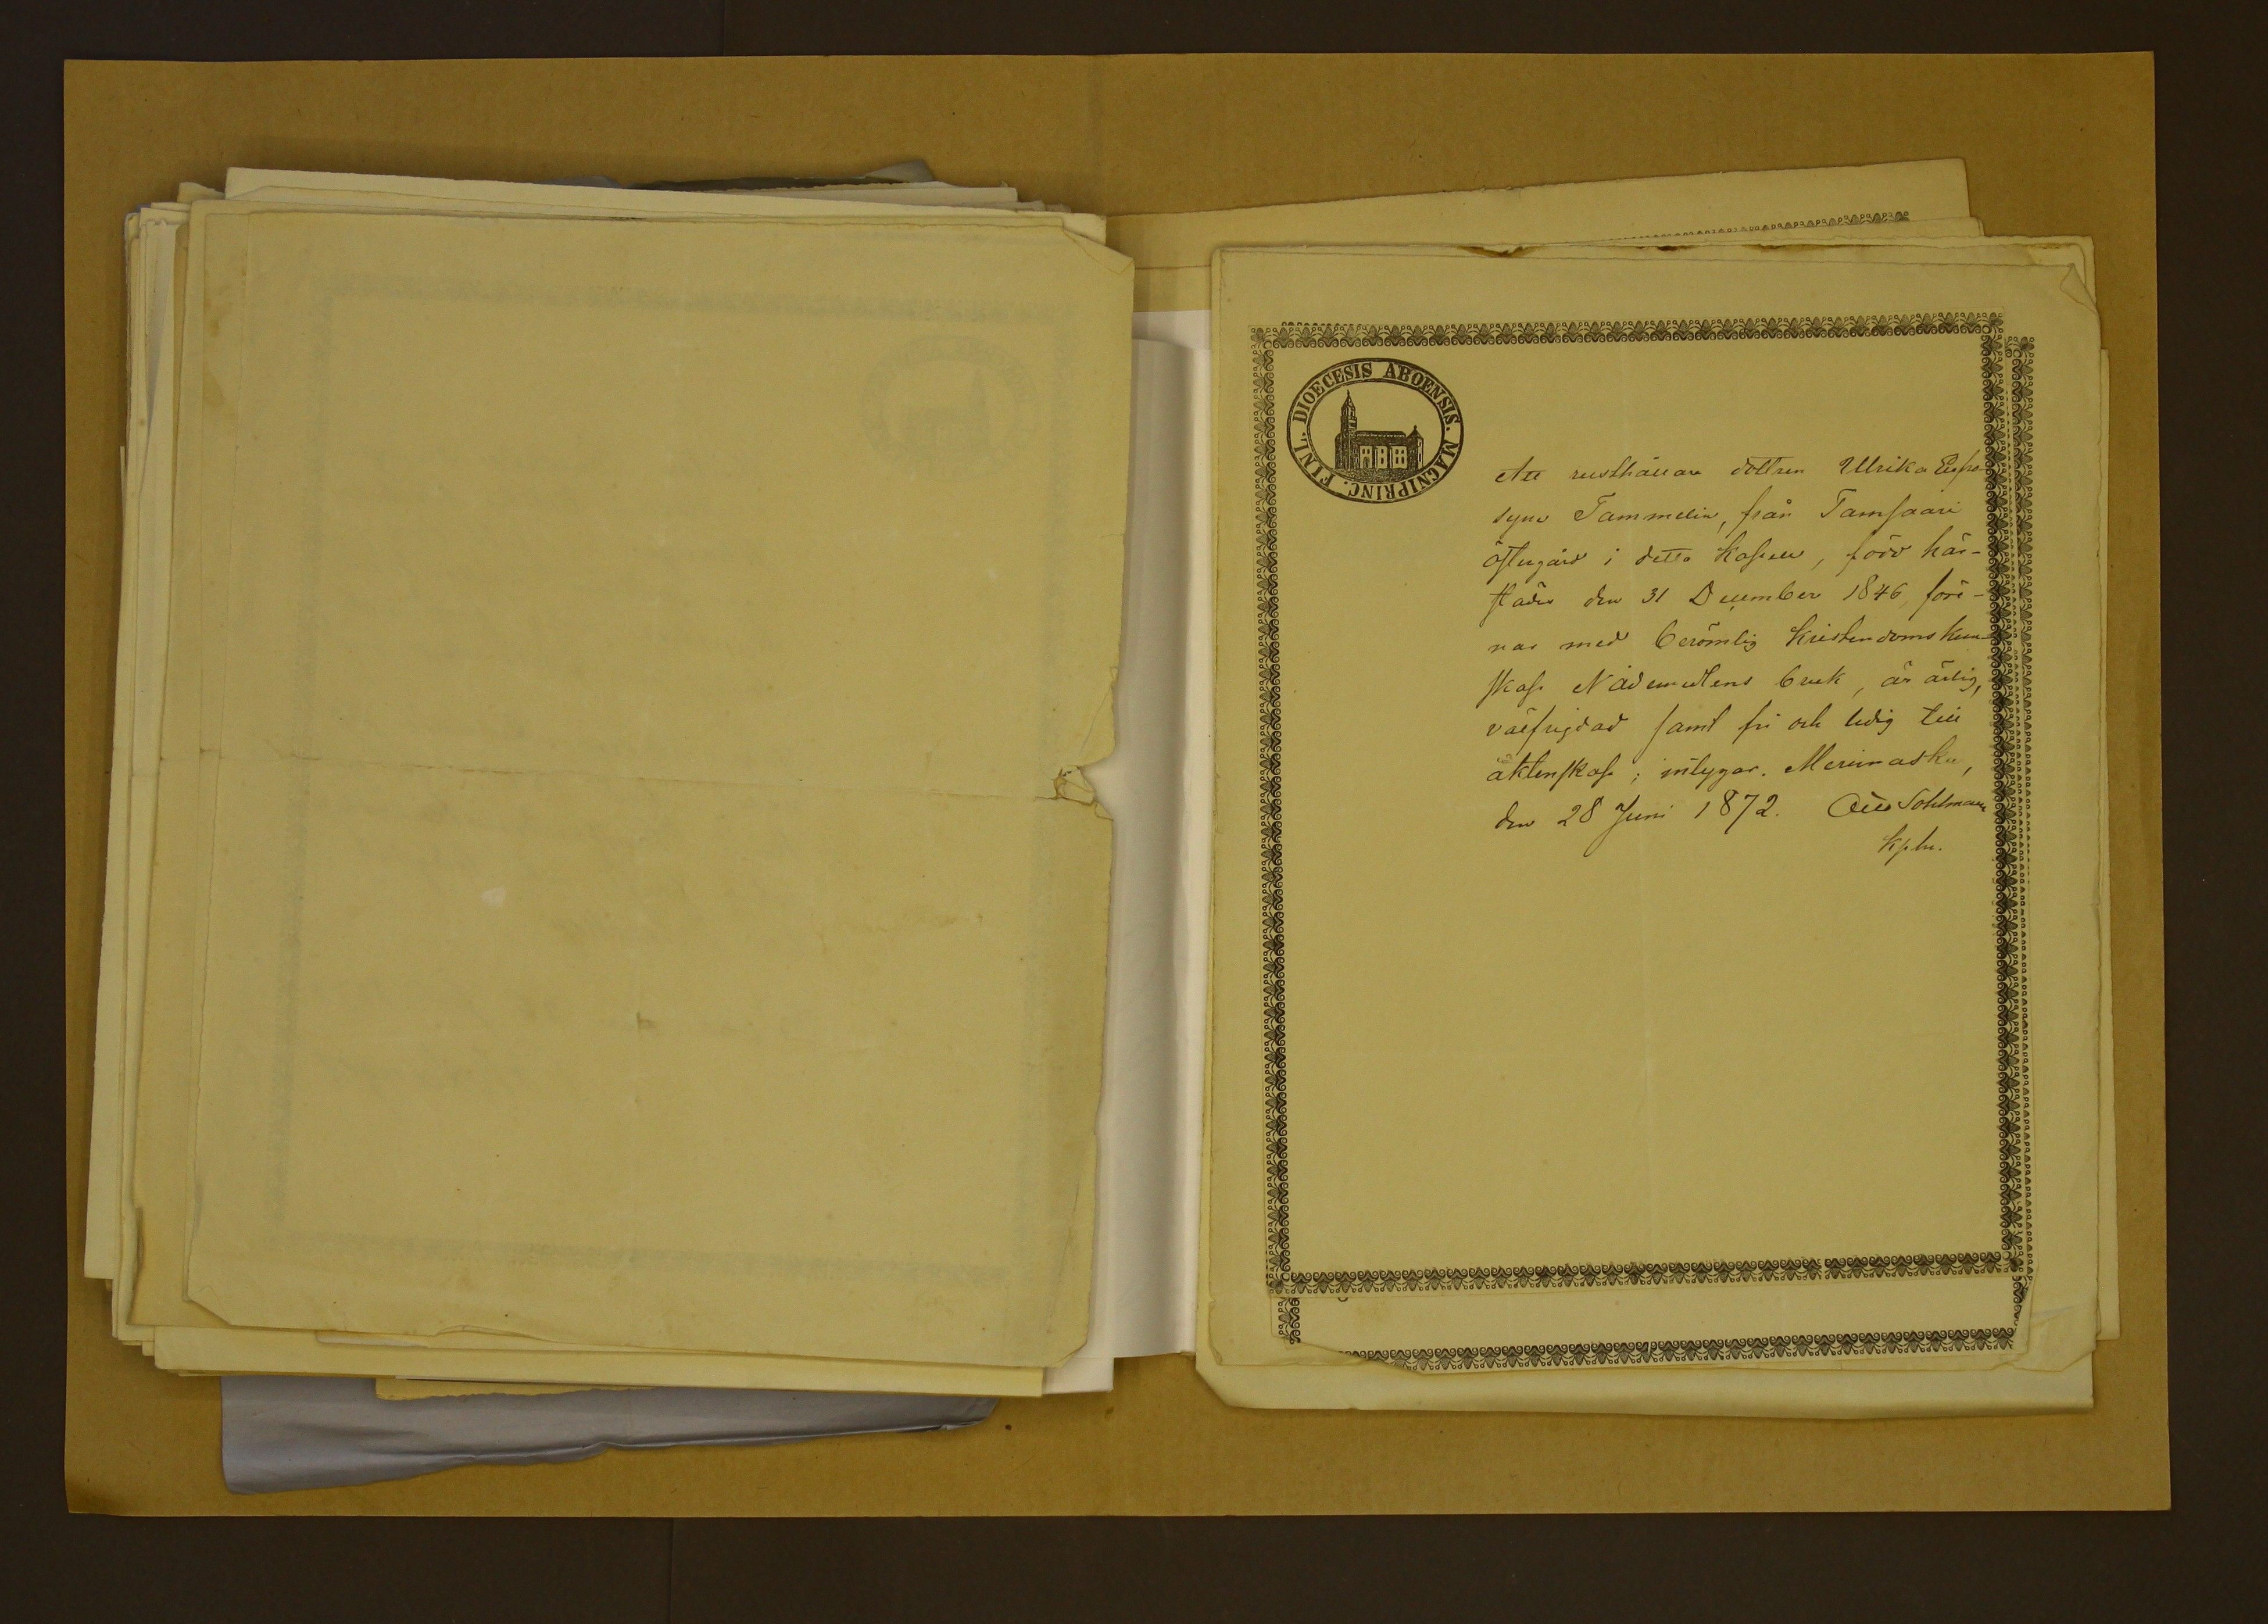 DIOECESIS ABOENSIS. MAGNIPRINC. FINL.
Att rusthållare dottren Ulrika Eufro-
syne Tammelin, från Tamsaari
Östergård i detta Kapell, född här-
städes den 31 December 1846, före-
nar med berömlig Kristendoms kun-
skap Nådemedlens bruk, är ärlig,
välfrejdad samt fri och ledig till
äktenskap; intygar. Merimasku,
den 28 Juni 1872. Otto Sohlman
Kpln.